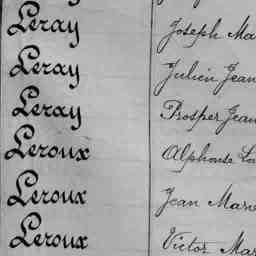 Leray Joseph Ma
Leray Julien Jean
Leray Prosper Jean
Leroux Alphonse
Leroux Jean Marie
Leroux Victor Mar